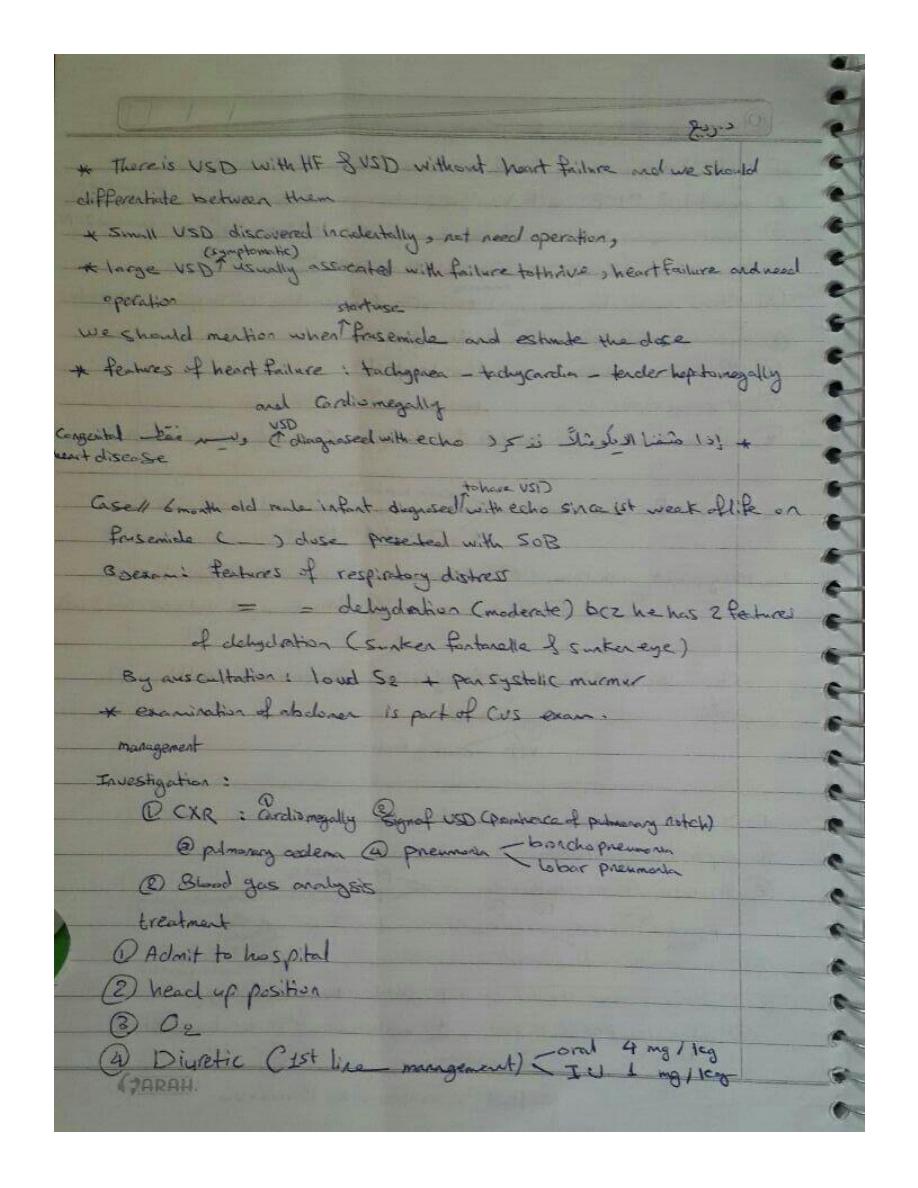 د. ربيع
* There is VSD with HF & VSD without heart failure and we should
differentiate between them
* Small VSD discovered incidentally, not need operation,
(symptomatic)
* large VSD ↑ usually assocated with failure to thrive, heart failure and need
operation
start use
we should mention when ↑ frusemide and estimate the dose
* features of heart failure : tachypnea - tachycardia - tender heptomegally
and Cardiomegally
VSD
* إذا شفنا الايكو مثلاً نذكر ( ↑ diagnosed with echo وليس فقط Congenital
heart disease
to have VSD
Case// 6 month old male infant diagnosed ↑ with echo since 1st week of life on
frusemide ( __ ) dose presented with SOB
exam: features of respiratory distress
= = dehydration (moderate) bcz he has 2 features
of dehydration (sunken fontanelle & sunken eye)
By auscultation : loud S2 + pan systolic murmur
* examination of abdomen is part of CVS exam.
management
Investigation :
① CXR : ① Cardiomegally ② Sign of VSD (prominence of pulmonary notch)
③ pulmonary oedema ④ pneumonia < bronchopneumonia
lobar pneumonia
② Blood gas analysis
treatment
① Admit to hospital
② head up position
③ O2
④ Diuretic (1st line management) < oral 4 mg / kg
IV 1 mg / kg
FARAH.